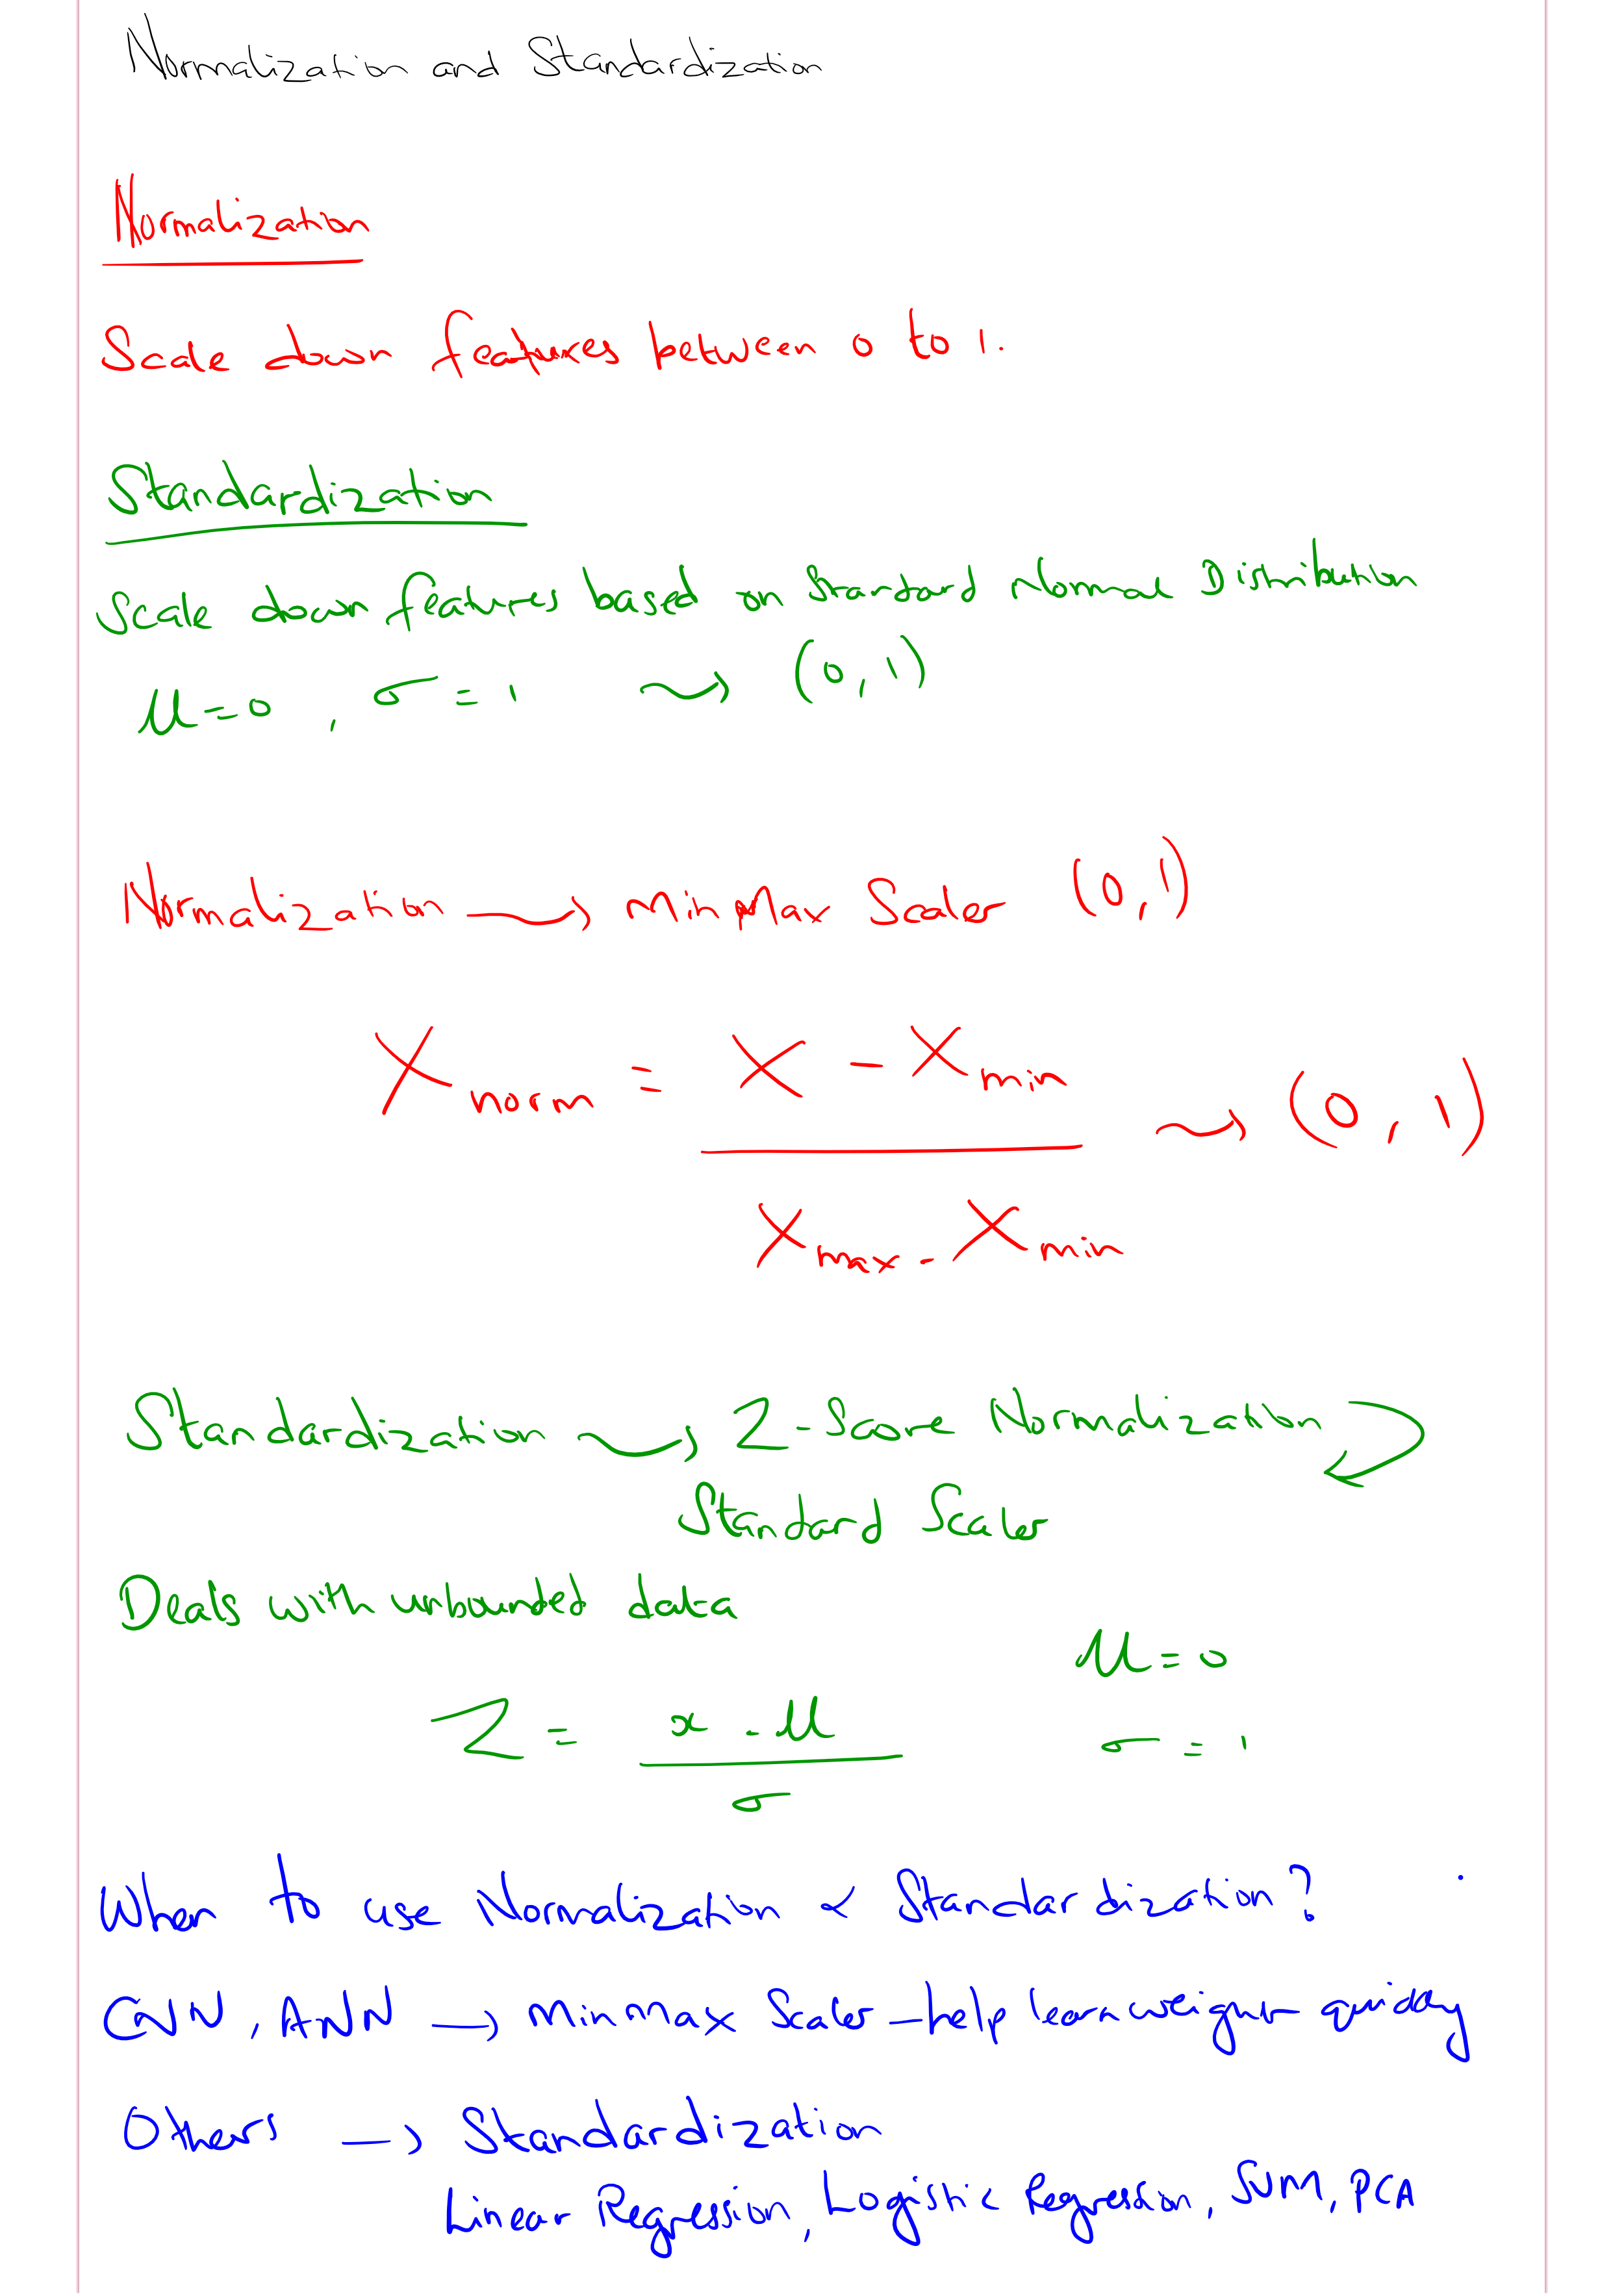 Normalization and Standardization
Normalization
Scale down features between 0 to 1.
Standardization
Scale down features based on Standard Normal Distribution
μ=0 , σ=1 → (0,1)
Normalization → Min Max Scaler (0,1)
Xnorm = X - Xmin → (0,1)
Xmax - Xmin
Standardization → Z-Score Normalization
Standard Scaler
Deals with unbounded data
μ=0
Z = x - μ
σ = 1
σ
When to use Normalization & Standardization?
CNN, ANN → Min Max Scaler - help learn weight quickly
Others → Standardization
Linear Regression, Logistic Regression, SVM, PCA